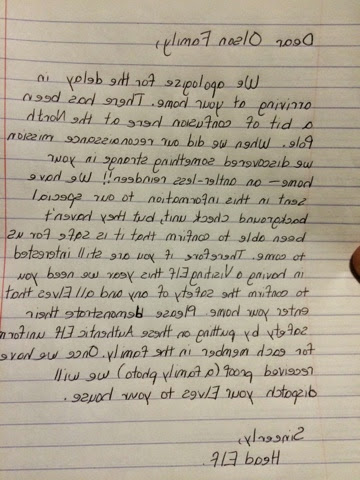 Dear Olson Family,
We apologize for the delay in
arriving at your home. There has been
a bit of confusion here at the North
Pole. When we did our reconnaissance mission
we discovered something strange in your
home – an antler-less reindeer!! We have
sent in this information to our special
background check unit, but they haven't
been able to confirm that it is safe for us
to come. Therefore if you are still interested
in having a Visiting Elf this year we need you
to confirm the safety of any and all Elves that
enter your home. Please demonstrate their
safety by putting on these Authentic Elf uniforms
for each member in the family. Once we have
recieved proof (a family photo) we will
dispatch your Elves to your house.
Sincerly,
Head Elf.